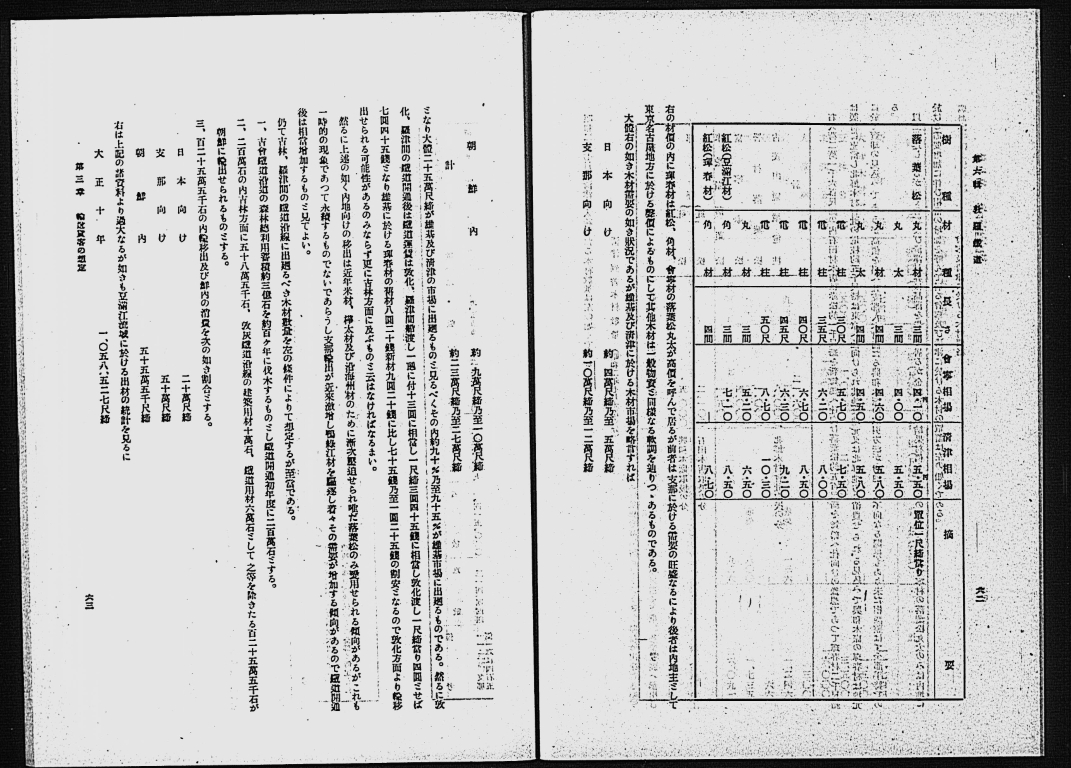 樹種 材種 長さ 會寧相場 清津相場 摘要
落葉松 丸材 三間 四・一〇 五・五〇 單位一尺締當り
丸太 三間 四・〇〇 五・五〇
丸材 四間 四・六〇 五・八〇
丸太 四間 四・五〇 五・八〇
電柱 三〇尺 五・五〇 七・五〇
電柱 三五尺 六・二〇 八・〇〇
電柱 四〇尺 六・七〇 八・五〇
電柱 四五尺 六・三〇 九・二〇
電柱 五〇尺 八・七〇 一〇・三〇
丸材 三間 五・二〇 六・五〇
紅松(豆滿江材) 角材 三間 七・二〇 八・五〇
紅松(琿春材) 角材 四間 八・七〇
右の材價の內に琿春材は紅松、角材、會寧材の落葉松丸太が高價を呼んで居るが前者は支那に於ける需要の旺盛なるにより後者は內地主として
東京名古屋地方に於ける聲價によるものにして其他木材は一般物資と同樣なる軟調を辿りつゝあるものである。
大體右の如き木材需要の如き狀況であるが雄基及び清津に於ける木材市場を略言すれば
日本向け 約 四萬尺締乃至 五萬尺締
支那向け 約一〇萬尺締乃至一二萬尺締
六二
朝鮮內 約 九萬尺締乃至一〇萬尺締
計 約二三萬尺締乃至二七萬尺締
となり大體二十五萬尺締が雄基及び清津の市場に出廻るものと見るべくその內約九十%乃至九十五%が雄基市場に出廻るものである。然るに敦
化、羅津間の鐵道開通後は鐵道運賃は敦化、羅津間艀渡し一噸に付十三圓に相當し一尺締三圓四十五錢に相當し敦化渡し一尺締當り四圓とせば
七圓四十五錢となり雄基に於ける琿春材の舊材八圓二十錢新材九圓二十錢に比し七十五錢乃至一圓二十五錢の割安となるので敦化方面より輸移
出せられる可能性があるのみならず更に吉林方面に及ぶものと云はなければなるまい。
然るに上述の如く內地向けの移出は近年米材、樺太材及び沿海州材のために漸次壓迫せられ唯だ落葉松のみ愛用せられる傾向があるがこれも
一時的の現象であつて永續するものでないであらうし支那輸出が近來激增し鴨綠江材を驅逐し着々その需要が增加する傾向があるので鐵道開通
後は相當增加するものと見てよい。
仍て吉林、羅津間の鐵道沿線に出廻るべき木材數量を左の條件によりて想定するが至當である。
一、吉會鐵道沿道の森林總利用蓄積約三億石を約百ケ年に伐木するものとし鐵道開通初年度に二百萬石とする。
二、二百萬石の內吉林方面に五十八萬五千石、敦灰鐵道沿線の建築用材十萬石、鐵道用材六萬石として之等を除きたる百二十五萬五千石が
朝鮮に輸出せられるものとする。
三、百二十五萬五千石の內輸移出及び鮮內の消費を次の如き割合とする。
日本向け 二十萬尺締
支那向け 五十萬尺締
朝鮮內 五十五萬五千尺締
右は上記の諸資料より過大なるが如きも豆滿江流域に於ける出材の統計を見るに
大正十年 一、〇五八、五二七尺締
第三章 輸出貨客の想定
六三